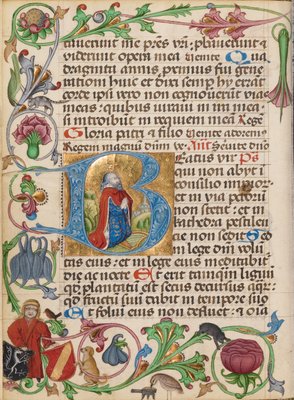 tauerunt me pr̄es vr̄i: probauerunt et
viderunt opera mea Venite Qua
draginta annis proximus fui gene
rationi huic et dixi semper hi errāt
corde ipsi vero non cognouerunt vias
meas: quibus iuraui in ira mea
si introibunt in requiem meā
Gloria patri et filio Venite adoremus
Regem magnū dm̄ Ant Seruite dn̄o
Beatus vir Ps
qui non abijt ī
consilio impior
et in via pctorū
non stetit: et in
cathedra pestilen
cie non sedit Sed
in lege dn̄i volun
tas eius: et in lege eius meditabit̄
die ac nocte Et erit tamq̄m lignū
qd̄ plantatū est secus decursus aq̄r:
qd̄ fructū suū dabit in tempore suo
Et foliū eius non defluet: et oīa